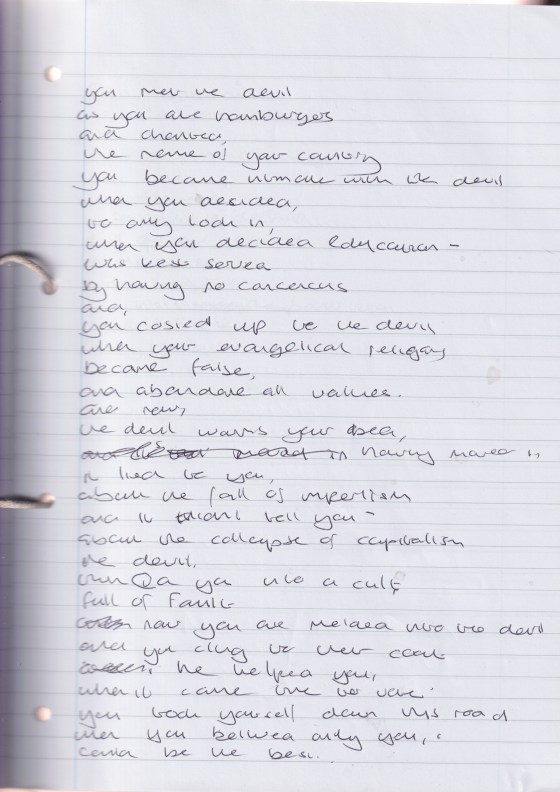 you met the devil
as you ate hamburgers
and chanted,
the name of your country
you became intimate with the devil
when you decided,
to only look in,
when you decided education -
was best served
by having no consensus
and,
you cosied up to the devil
when your evangelical religions
became false,
and abandoned all values.
and now,
the devil warms your bed,
having moved in
it lied to you,
about the fall of imperialism
and it didnt tell you -
about the collapse of capitalism
the devil,
turned you into a cult
full of faults
now you are melded into the devil
and you cling to their coat
he helped you,
when it came time to vote
you took yourself down this road
when you believed only you,
could be the best.